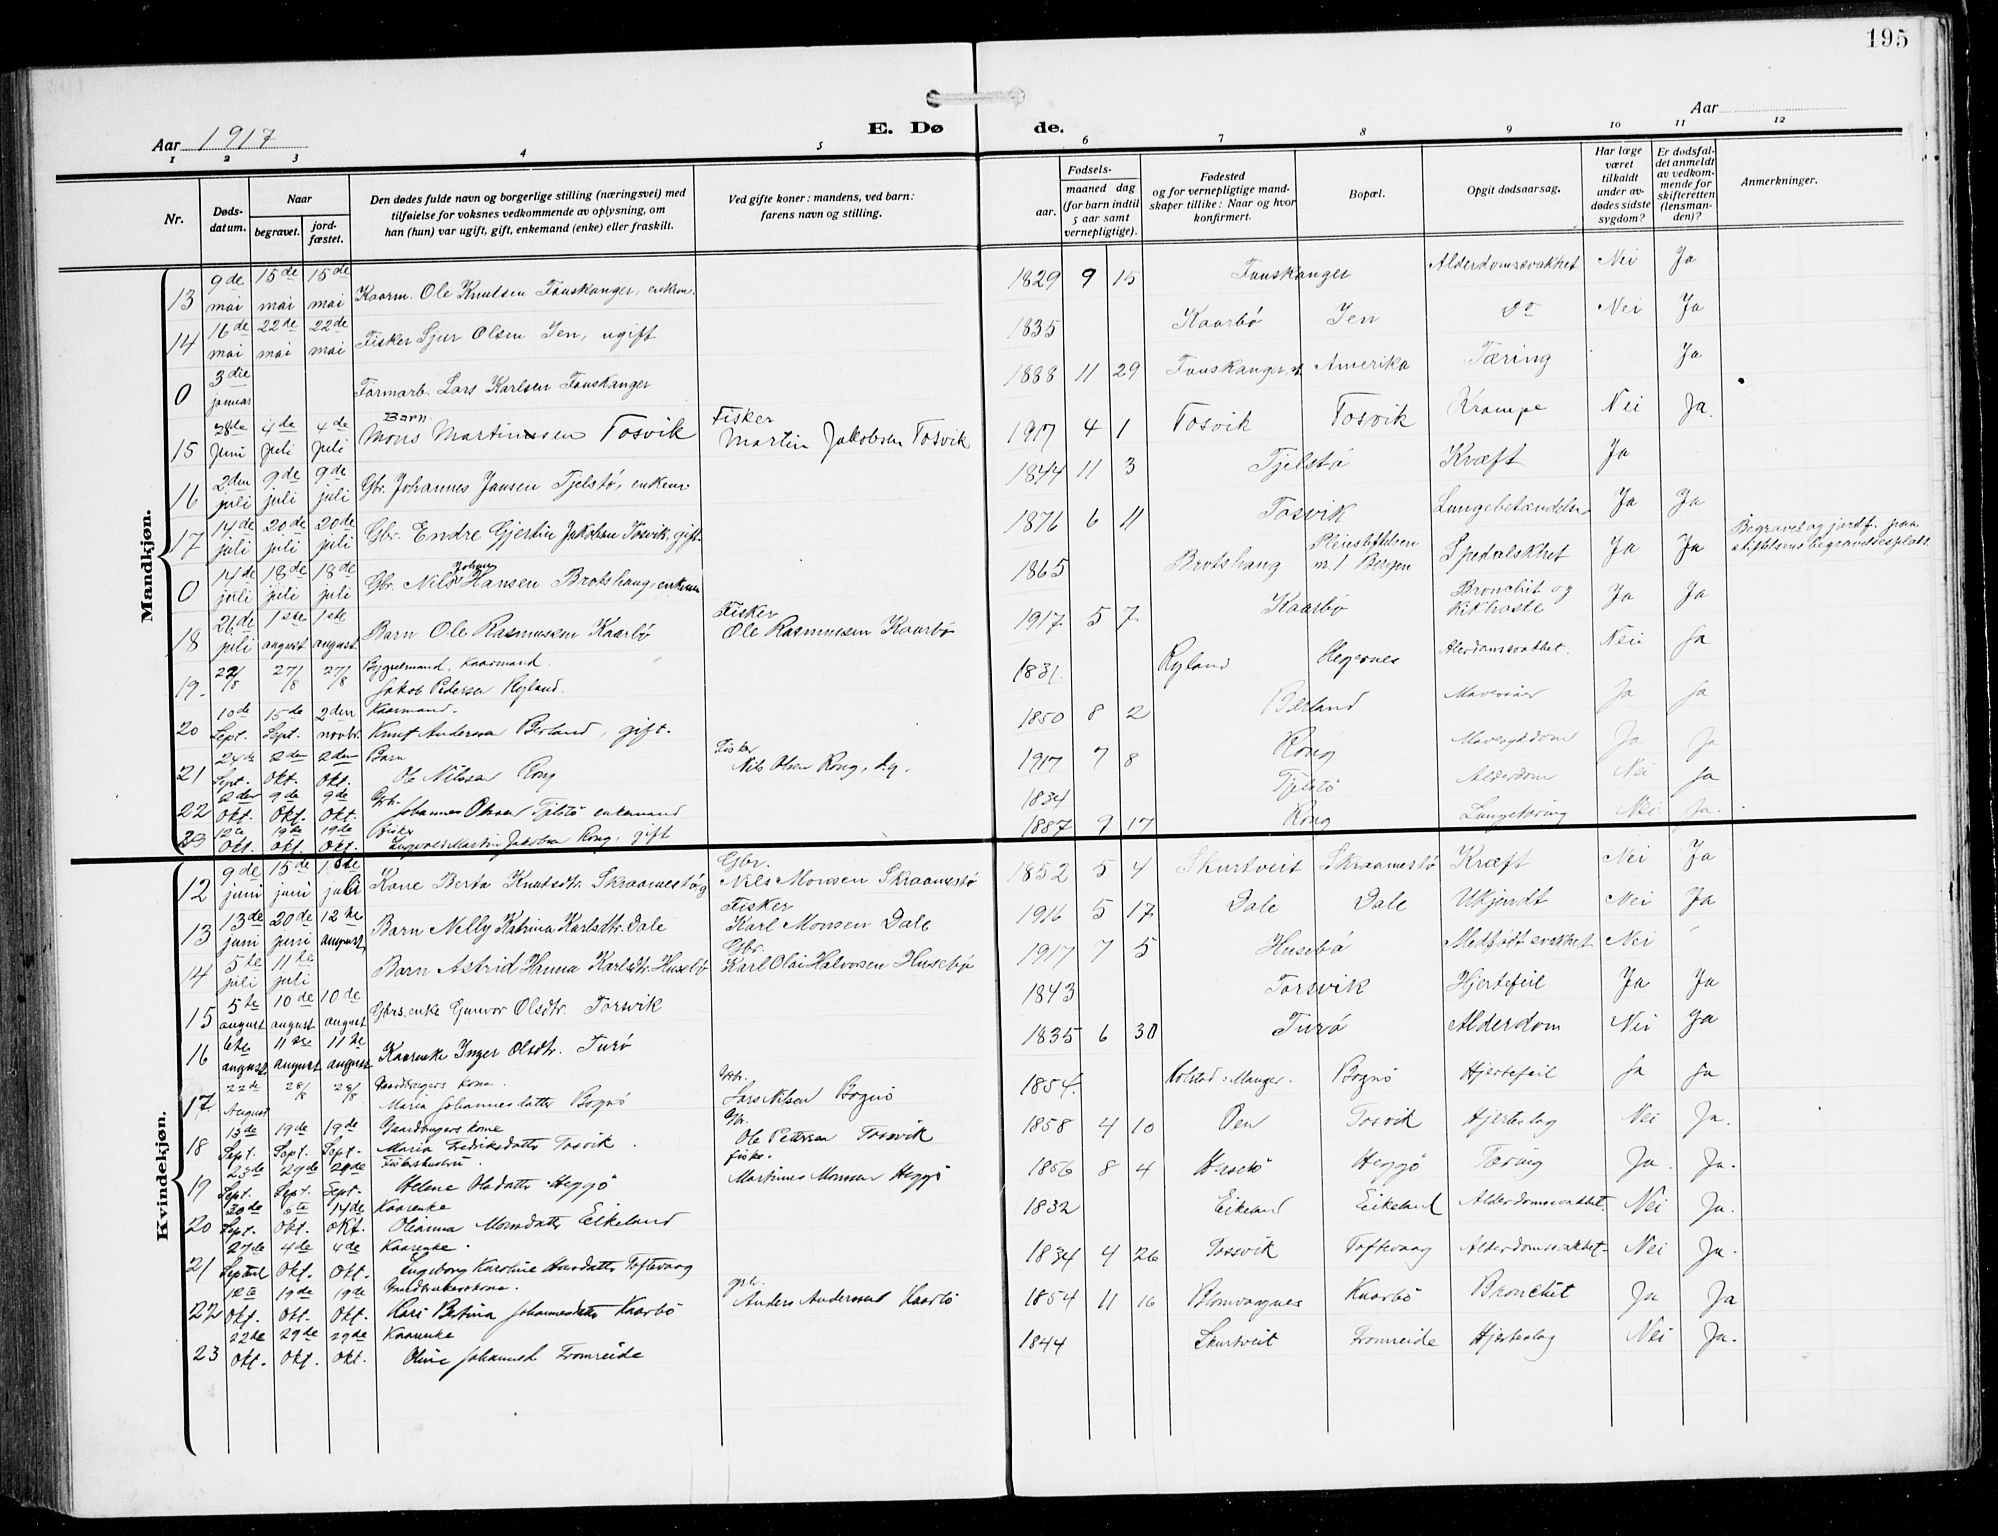 195
Aar 1917
E. Døde.
Aar
1 2 3 4 5 6 7 8 9 10 11 12
Nr.
Døds-datum.
Naar
begravet.
jord-fæstet.
Den dødes fulde navn og borgerlige stilling (næringsvei) med
tilføielse for voksnes vedkommende av oplysning, om
han (hun) var ugift, gift, enkemand (enke) eller fraskilt.
Ved gifte koner: mandens, ved barn:
farens navn og stilling.
Fødsels-
aar.
maaned dag
(for barn indtil
5 aar samt
vernepligtige).
Fødested
og for vernepligtige mand-
skaper tillike: Naar og hvor
konfirmert.
Bopæl.
Opgit dødsaarsag.
Har læge
været
tilkaldt
under av-
dødes sidste
sygdom?
Er dødsfal-
det anmeldt
av vedkom-
mende for
skifteretten
(lensman-
den)?
Anmerkninger.
Mandkjøn.
13 9de mai 15de mai 15de mai Kaarm. Ole Knutsen Fauskanger, enkem. 1829 9 15 Fauskanger Alderdomssvakhet Nei Ja
14 16de mai 22de mai 22de mai Fisker Sjur Olsen Jen, ugift 1835 Kaarbø Jen Do Nei Ja
0 3die januar Farmarb. Lars Karlsen Fauskanger 1888 11 29 Fauskanger Amerika Tæring Ja
15 28de Juni 4de Juli 4de Juli Barn Mons Martinssen Tosvik Fisker Martin Jakobsen Tosvik 1917 4 1 Tosvik Tosvik Krampe Nei Ja.
16 2den juli 9de juli 9de juli Gbr. Johannes Jansen Tjelstø, enkem. 1844 11 3 Tjelstø Kræft Ja
17 14de juli 20de juli 20de juli Gbr. Endre Gjertin Jakobsen Tosvik, gift 1876 6 11 Tosvik Lungebetændelse Ja Ja
0 14de juli 18de juli 18de juli Gbr. Nils Johan Hansen Brotshaug, enkem 1865 Brotshaug Pleiestiftelsen nr. 1 Bergen Spedalskhet Ja Ja Begravet og jordf. paa stiftelsens begravelsesplads.
18 26de juli 1ste august 1ste august Barn Ole Rasmussen Kaarbø Fisker Ole Rasmussen Kaarbø 1917 5 7 Kaarbø Bronchit og kikhoste Ja Ja
19. 22/8 27/8 27/8 Kaarmand. Jakob Pedersen Ryland. 1831. Ryland Hegernes Alderdomssvakhet. Nei Ja
20 10de Sept. 15de Sept. 2den novbr. Kaarmand. Knut Andersen Berland, gift. 1850 8 2 Berland Mavesaar Ja Ja
21 24de Sept. 2den Okt. 2den Okt. Barn Ole Nilssen Rong Fisker Nils Olsen Rong, d.y. 1917 7 8 Rong Mavesygdom Ja Ja
22 2den Okt. 9de Okt. 9de Okt. Gbr. Johannes Olsen Tjelstø enkemand 1834 Tjelstø Alderdom Nei Ja
23 12te Okt. 19de Okt. 19de Okt. Fisker Ingvald Martin Jakobsen Rong, gift 1887 9 17 Rong Lungetæring Nei Ja.
Kvindekjøn.
12 9de juni 15de juni juli Kone Berta Knutsdtr. Skraamestø Gbr. Nils Monsen Skraamestø 1852 5 4 Skurtveit Skraamestø Kræft Nei Ja
13 13de juni 20de juni 12te august, Barn Nelly Katrina Karlsdtr. Dale Fisker Karl Monsen Dale 1916 5 17 Dale Dale Ukjendt Nei Ja
14 5te juli 11te juli Barn Astrid Hanna Karlsdtr. Husebø Gbr. Karl Olai Halvorsen Husebø 1917 7 5 Husebø Medfødt svakhet Nei
15 5te august 10de august 10de august Gbrs. enke Gunvor Olsdtr. Torsvik 1843 Torsvik Hjertefeil Ja Ja
16 6te august 11te august 11te august Kaarenke Inger Olsdtr. Turø 1835 6 30 Turø Alderdom Nei Ja
17 22de August 28/8 28/8 Gaardbrugers kone. Maria Johannesdatter Bognø Gbr. Lars Nilsen Bognø 1854. Kolstad i Manger. Bognø Hjertefeil Ja Ja
18 13de Sept. 19de Sept. 19de Sept. Gaardbrugers kone Maria Fredriksdatter Tosvik. Gbr. Ole Pettersen Tossvik 1858 4 10 Oen Tosvik Hjerteslag Nei Ja.
19 23de Sept. 29de Sept. 29de Sept. Fiskerhustru. Helene Olsdatter Heggø fisker Martinus Monsen Heggø 1856 8 4 Herdlø Heggø Tæring Ja. Ja.
20 30de Sept. 6te Okt. 14de Okt. Kaarenke Olianna Monsdatter Eikeland 1832 Eikeland Eikeland Alderdomssvakhet. Nei Ja.
21 27de Septbr. 4de Okt. 4de Okt. Kaarenke. Ingeborg Karoline Hansdatter Toftevaag 1834 4 26 Tossvik Toftevaag Alderdomssvakhet. Nei Ja.
22 12te Okt. 19de Okt. 19de Okt. Gaardbrukerskone. Kari Betina Johannesdatter Kaarbø gbr. Anders Andersen Kaarbø 1854 11 16 Blomvaagnes Kaarbø Bronchit Ja Ja
23 22de Okt. 29de Okt. 29de Okt. Kaarenke Oline Johannesd Fromreide 1844 Skurtveit Fromreide Hjerteslag Nei Ja.